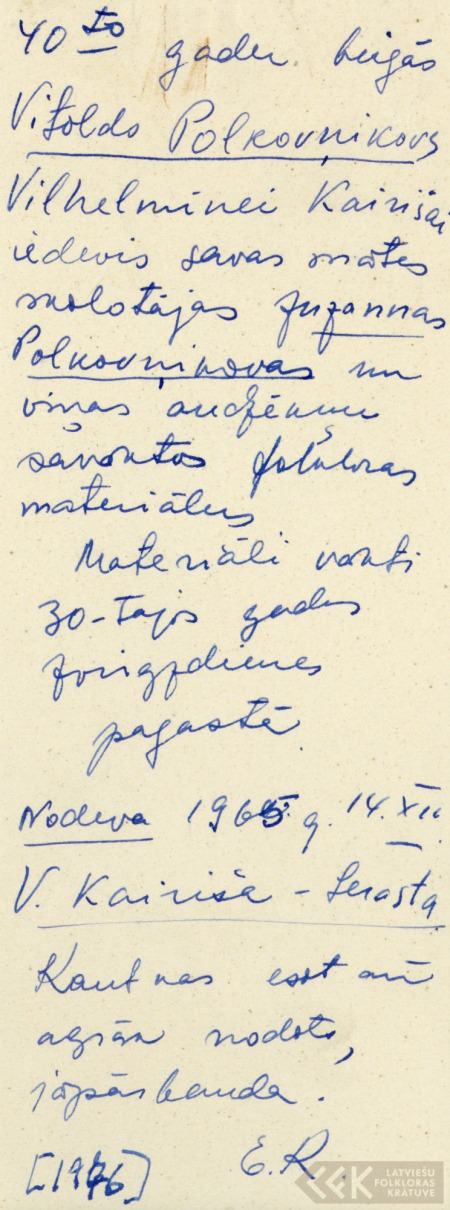 40to gadu beigās
Vitolds Polkovņikovs
Vilhelmīnei Kairišai
iedevis savas mātes
skolotājas Zuzannas
Polkovņikovas un
viņas audzēkņu
savāktos folkloras
materiālus
Materiāli vākti
30-tajos gados
pagastā
Nodeva 1965. g. 14. XII.
V. Kairiša -
Kaut kas esot arī
agrāk nodots,
jāpārbauda.
[1976] E.R.
LATVIEŠU
FOLKLORAS
KRĀTUVE